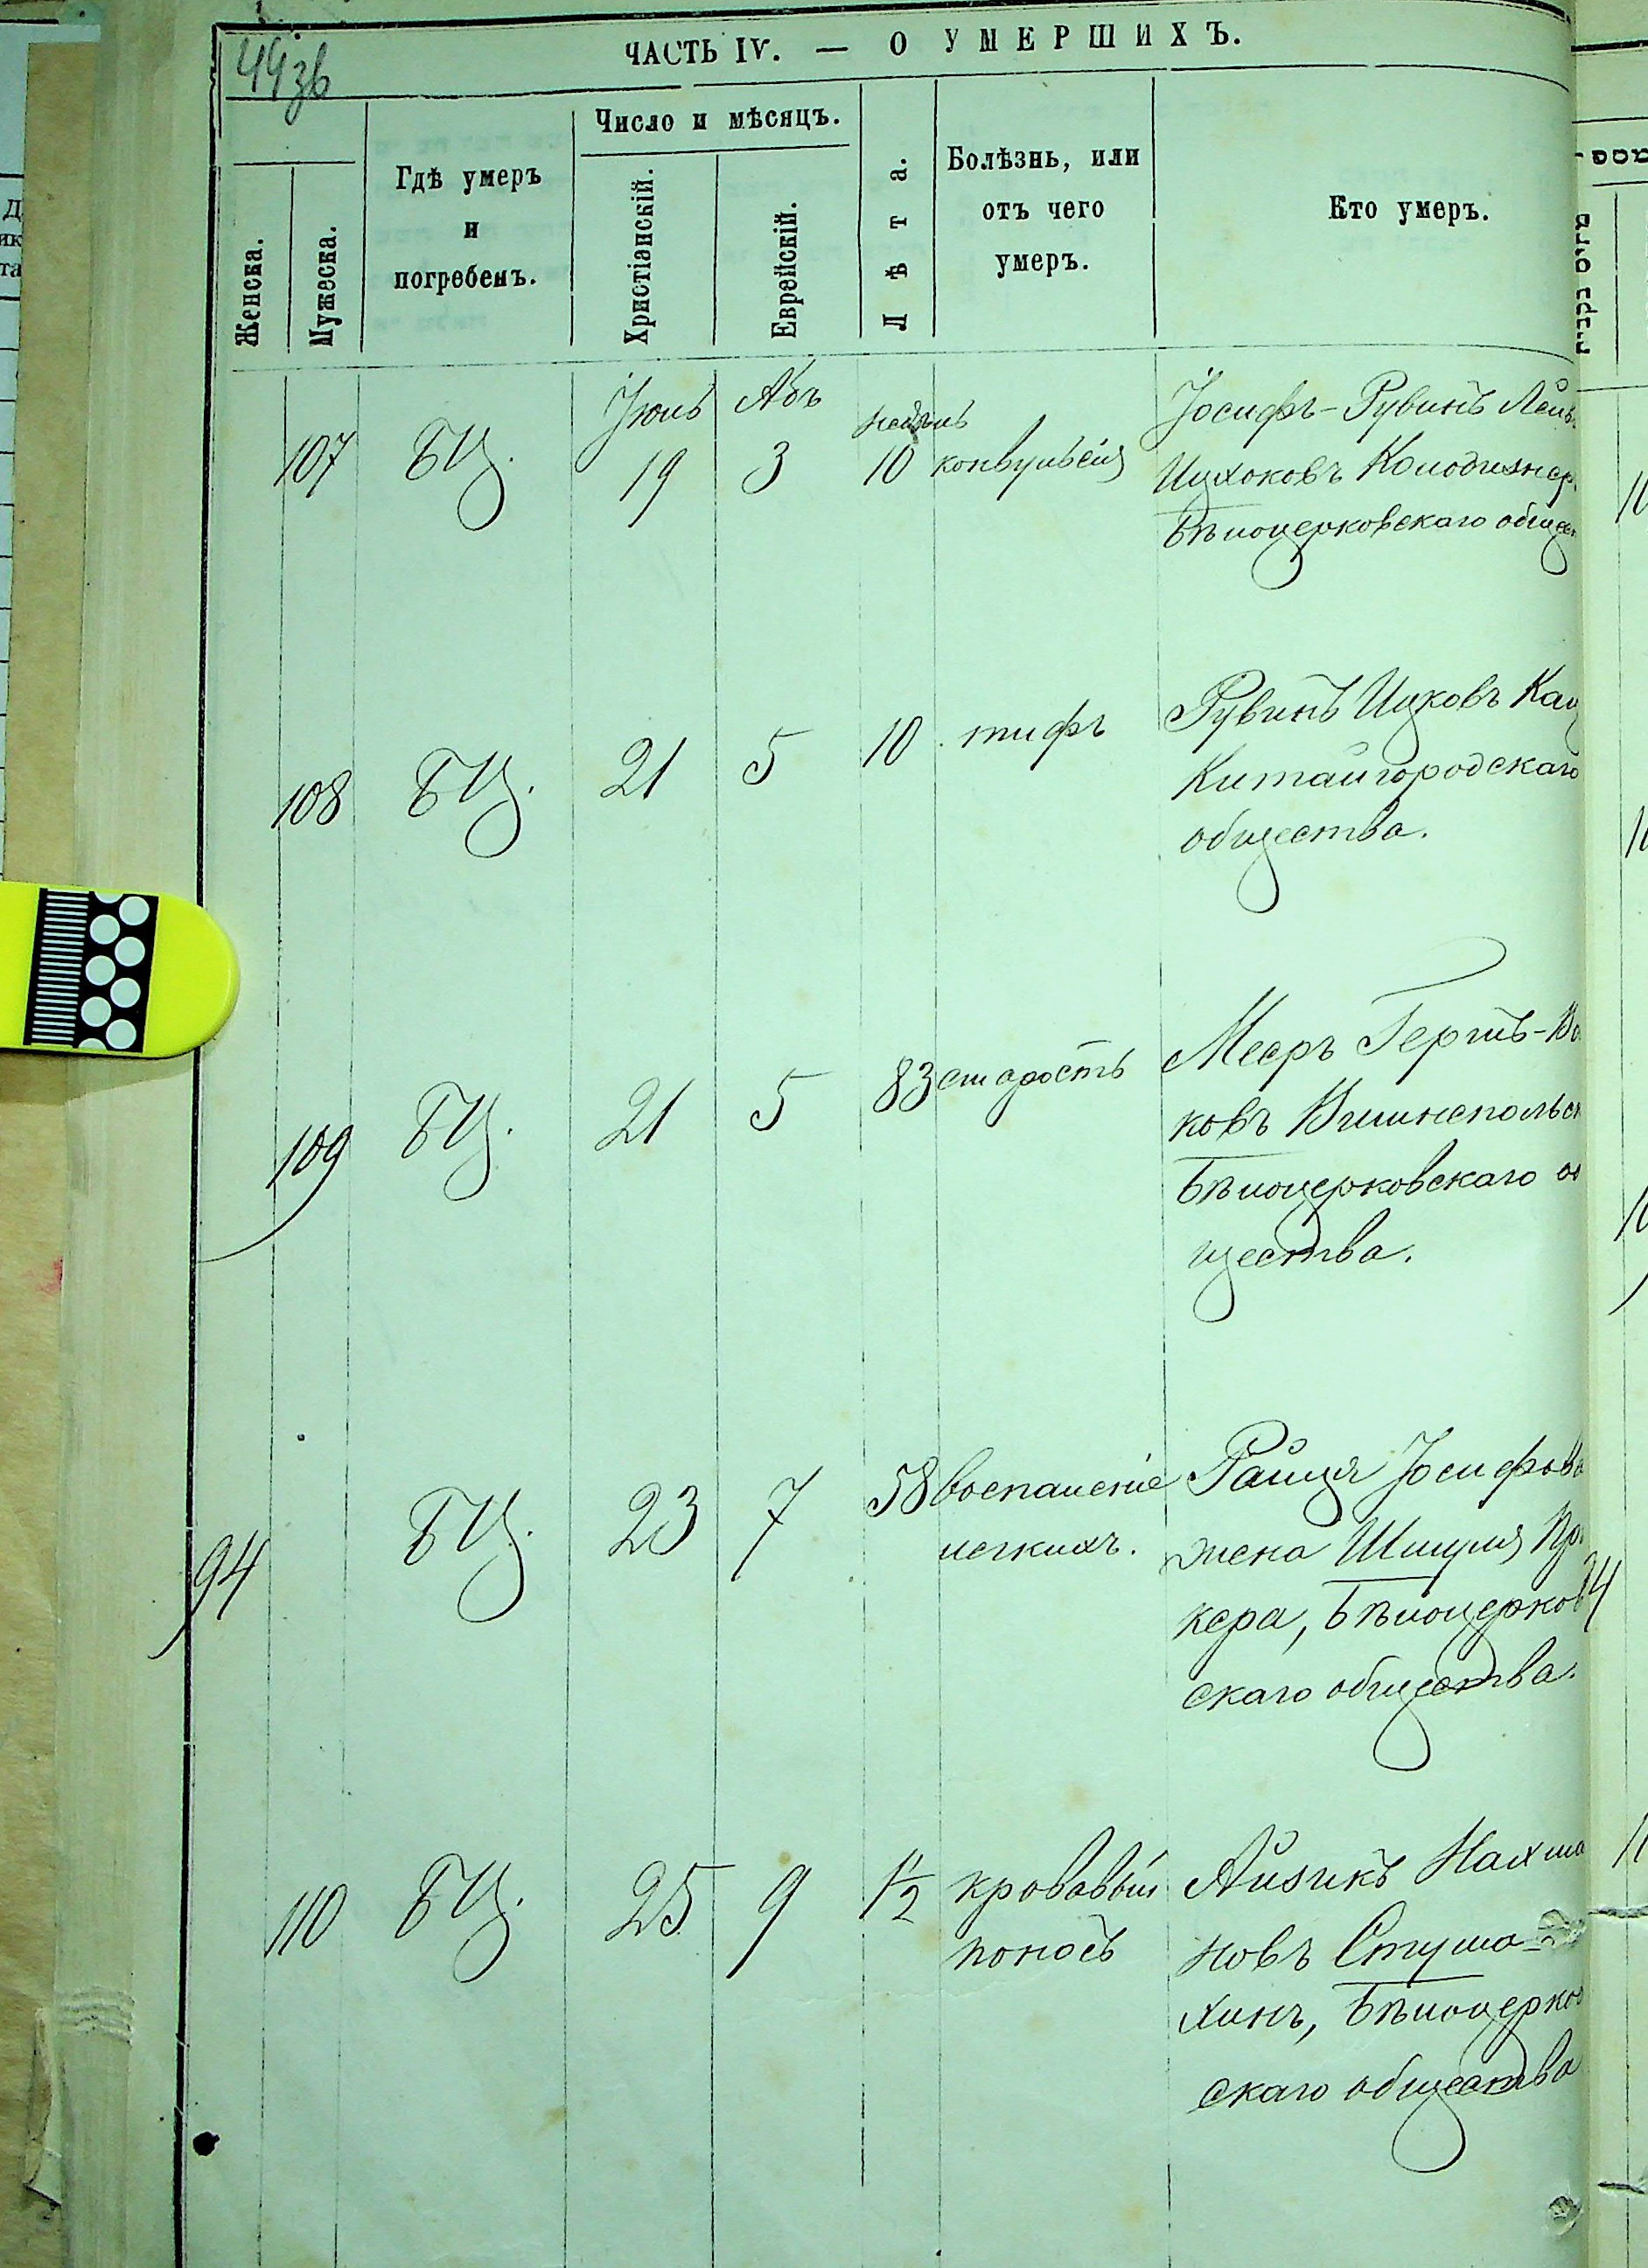 44зв
ЧАСТЬ IV. — О УМЕРШИХЪ.
Женска.
Мужеска.
Гдѣ умеръ
и
погребенъ.
Число и мѣсяцъ.
Христіанскій.
Еврейскій.
Лѣта.
Болѣзнь, или
отъ чего
умеръ.
Кто умеръ.
Іюль Абъ
107 БЦ. 19 3 10 конвульсія
Іосифъ-Рувинъ
Ицхоковъ
Бѣлоцерковскаго общес
108 БЦ. 21 5 10 тифъ
Рувинъ Ицковъ Кац
Китайгородскаго
общества.
109 БЦ. 21 5 83 старость
Мееръ Гершъ-Во
ковъ Вишнепольск
Бѣлоцерковскаго об
щества.
94 БЦ. 23 7 58 воспаленіе
легкихъ.
Раиця Іосифова
жена Шмуля
кера, Бѣлоцерков
скаго общества.
110 БЦ. 25 9 1½ кровавый
поносъ
Айзикъ Нахма
новъ Стума-
хинъ, Бѣлоцерков
скаго общества